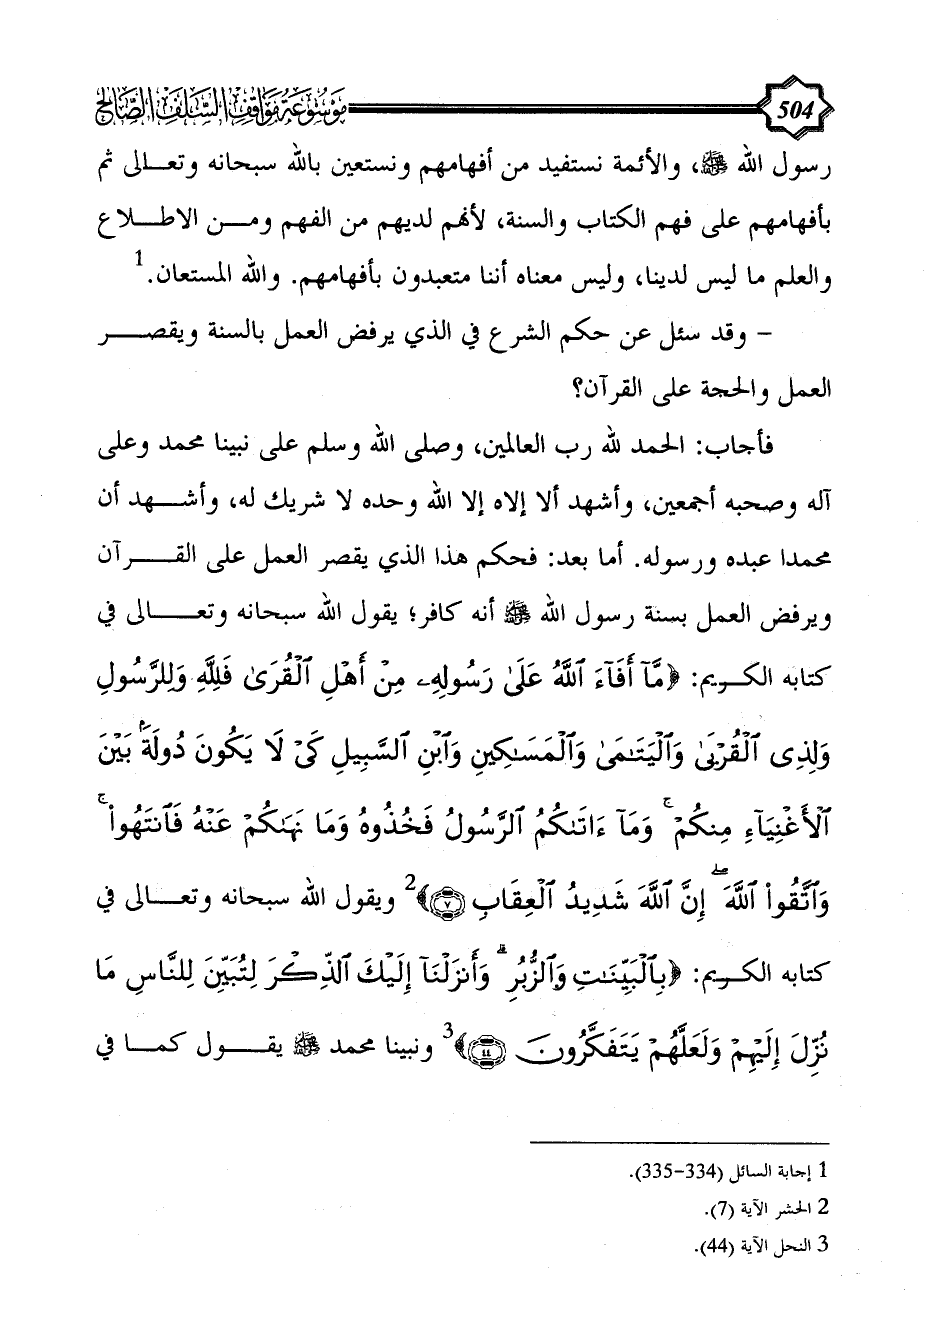 504 موسوعة مواقف السلف الصالح
رسول الله ﷺ، والأئمة نستفيد من أفهامهم ونستعين بالله سبحانه وتعالى ثم
بأفهامهم على فهم الكتاب والسنة، لأنهم لديهم من الفهم ومن الاطلاع
والعلم ما ليس لدينا، وليس معناه أننا متعبدون بأفهامهم. والله المستعان.1
- وقد سئل عن حكم الشرع في الذي يرفض العمل بالسنة ويقصر
العمل والحجة على القرآن؟
فأجاب: الحمد لله رب العالمين، وصلى الله وسلم على نبينا محمد وعلى
آله وصحبه أجمعين، وأشهد ألا إلاه إلا الله وحده لا شريك له، وأشهد أن
محمدا عبده ورسوله. أما بعد: فحكم هذا الذي يقصر العمل على القرآن
ويرفض العمل بسنة رسول الله ﷺ أنه كافر؛ يقول الله سبحانه وتعالى في
كتابه الكريم: ﴿مَّآ أَفَآءَ ٱللَّهُ عَلَىٰ رَسُولِهِۦ مِنْ أَهْلِ ٱلْقُرَىٰ فَلِلَّهِ وَلِلرَّسُولِ
وَلِذِى ٱلْقُرْبَىٰ وَٱلْيَتَـٰمَىٰ وَٱلْمَسَـٰكِينِ وَٱبْنِ ٱلسَّبِيلِ كَىْ لَا يَكُونَ دُولَةًۢ بَيْنَ
ٱلْأَغْنِيَآءِ مِنكُمْ ۚ وَمَآ ءَاتَىٰكُمُ ٱلرَّسُولُ فَخُذُوهُ وَمَا نَهَىٰكُمْ عَنْهُ فَٱنتَهُوا۟ ۚ
وَٱتَّقُوا۟ ٱللَّهَ ۖ إِنَّ ٱللَّهَ شَدِيدُ ٱلْعِقَابِ ٧﴾2 ويقول الله سبحانه وتعالى في
كتابه الكريم: ﴿بِٱلْبَيِّنَـٰتِ وَٱلزُّبُرِ ۗ وَأَنزَلْنَآ إِلَيْكَ ٱلذِّكْرَ لِتُبَيِّنَ لِلنَّاسِ مَا
نُزِّلَ إِلَيْهِمْ وَلَعَلَّهُمْ يَتَفَكَّرُونَ ٤٤﴾3 ونبينا محمد ﷺ يقول كما في
1 إجابة السائل (334-335).
2 الحشر الآية (7).
3 النحل الآية (44).